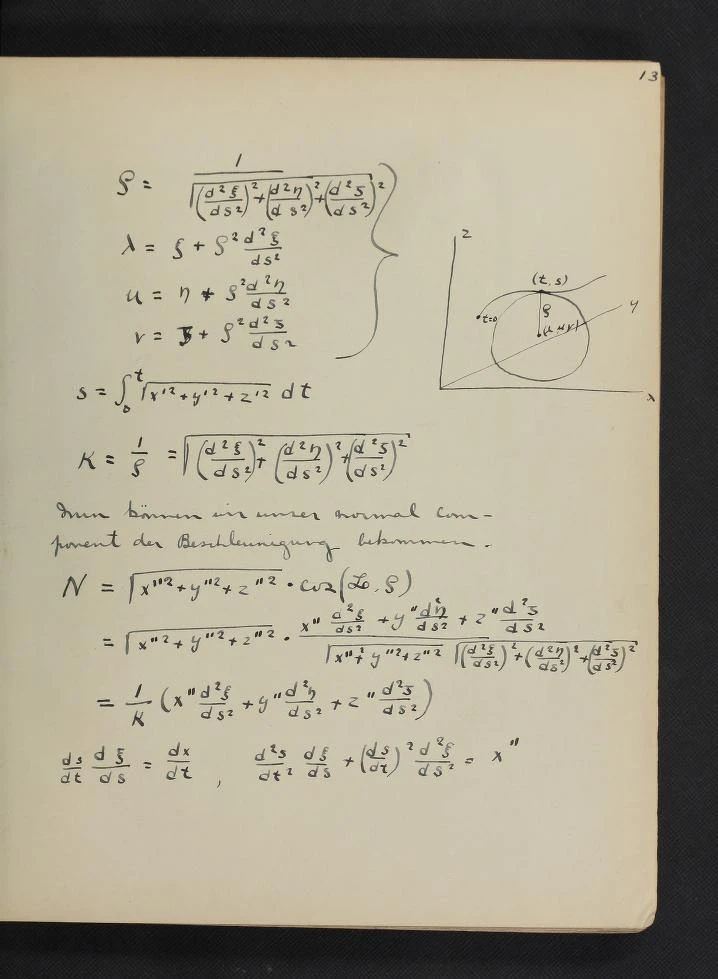 13
ρ = 1 / √((d²ξ/ds²)² + (d²η/ds²)² + (d²ζ/ds²)²)
λ = ξ + ρ² d²ξ/ds²
μ = η + ρ² d²η/ds²
ν = ζ + ρ² d²ζ/ds²
z
(t, s)
ρ
y
t=0
(λ, μ, ν)
x
s = ∫₀ᵗ √(x'² + y'² + z'²) dt
K = 1/ρ = √((d²ξ/ds²)² + (d²η/ds²)² + (d²ζ/ds²)²)
Nun können wir unser normal com-
ponent der Beschleunigung bekommen.
N = √(x''² + y''² + z''²) · cos(L, ρ)
= √(x''² + y''² + z''²) · (x'' d²ξ/ds² + y'' d²η/ds² + z'' d²ζ/ds²) / (√(x''² + y''² + z''²) √((d²ξ/ds²)² + (d²η/ds²)² + (d²ζ/ds²)²))
= 1/K (x'' d²ξ/ds² + y'' d²η/ds² + z'' d²ζ/ds²)
ds/dt dξ/ds = dx/dt , d²s/dt² dξ/ds + (ds/dt)² d²ξ/ds² = x''